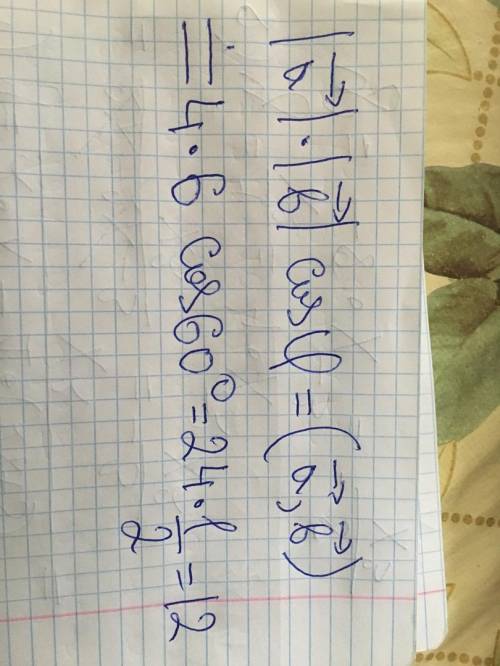 |a⃗|·|b⃗| cosφ = (a⃗, b⃗)
= 4·6 cos60° = 24·1/2 = 12